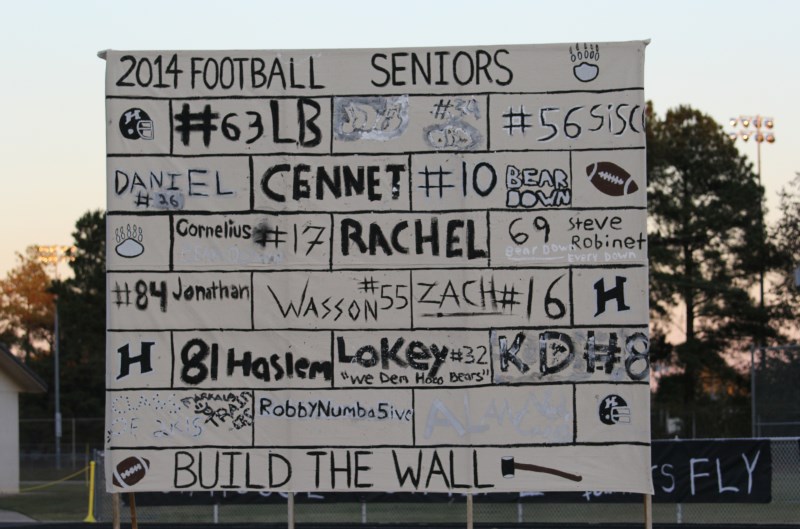 2014 FOOTBALL SENIORS
H #63 LB #56 SiSCO
DANIEL #36 CENNET #10 BEAR DOWN
Cornelius #17 RACHEL 69 Steve Robinet
Bear Down Every Down
#84 Jonathan WASSON #55 ZACH #16 H
H 81 Haslem LOKEY #32 KD #8
"We Dem Hoco Bears"
RobbyNumba5ive ALAN H
BUILD THE WALL
FLY